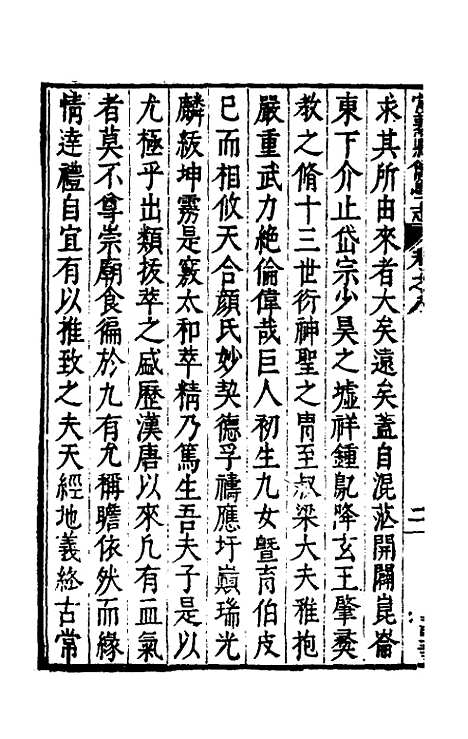 求其所由來者大矣遠矣蓋自混沌開闢崑崙
東下介止岱宗少昊之墟祥鍾鳦降玄王肇奠
教之脩十三世衍神聖之胄至叔梁大夫雅抱
嚴重武力絶倫偉哉巨人初生九女曁育伯皮
已而相攸天合顔氏妙契德孚禱應圩巔瑞光
麟紱坤霧是竅太和萃精乃篤生吾夫子是以
尤極乎出類拔萃之盛歷漢唐以來凢有血氣
者莫不尊崇廟食徧於九有尤稱瞻依然而緣
情達禮自宜有以推致之夫天經地義終古常
二